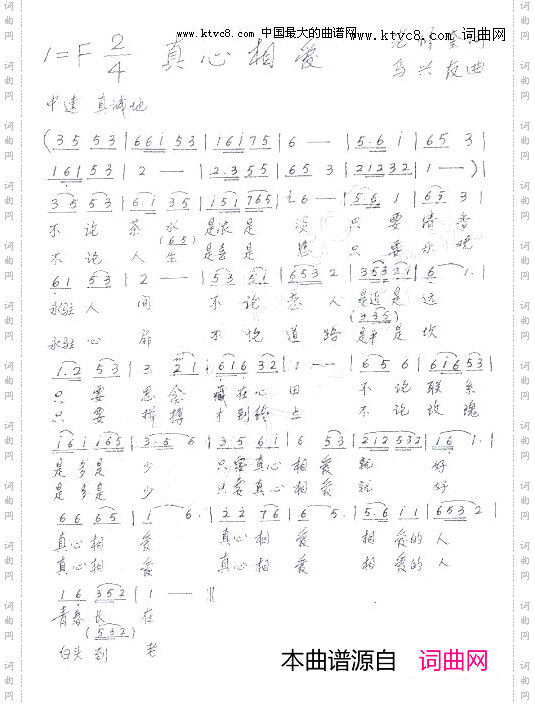 www.ktvc8.com 中国最大的曲谱网 www.ktvc8.com 词曲网
1=F 2/4 真心相爱
马兴友曲
中速 真诚地
(35 53 | 661 53 | 161 75 | 6 — | 5.6 i | 65 3 |
161 53 | 2 — — | 2.3 55 | 65 3 | 21232 | 1 — — ) |
35 53 | 6.1 35 | 151 765 | 6 — — | 5.6 1 | 65 3 |
不论 茶 水 是浓是 淡 只要清香
(65)
不论 人 生 是喜是 只要乐观
61 53 | 2 — — | 53 5.1 | 6532 | 35321 | 6 1. |
永驻人 间 不论恋人 是近是远
(335)
永驻心 不论道路 是平是坎
1.2 53 | 3 21 | 61632 | 1 — — | 65 6 | 61653 |
只要思念 藏在心田 不论联系
只要拼搏 才到终点 不论玫瑰
161 165 | 3.5 6 | 35 61 | 6 53 | 212532 | 16 1. |
是多是 少 只要真心相爱就 好
是多是 少 只要真心相爱就 好
66 65 | i 6. | 22 76 | 6 5. | 5.6 11 | 6532 |
真心相 爱 真心相 爱 相爱的人
真心相 爱 真心相 爱 相爱的人
16 352 | 1 — — |
青春长 在
(532)
白头到 老
本曲谱源自 词曲网
词曲网